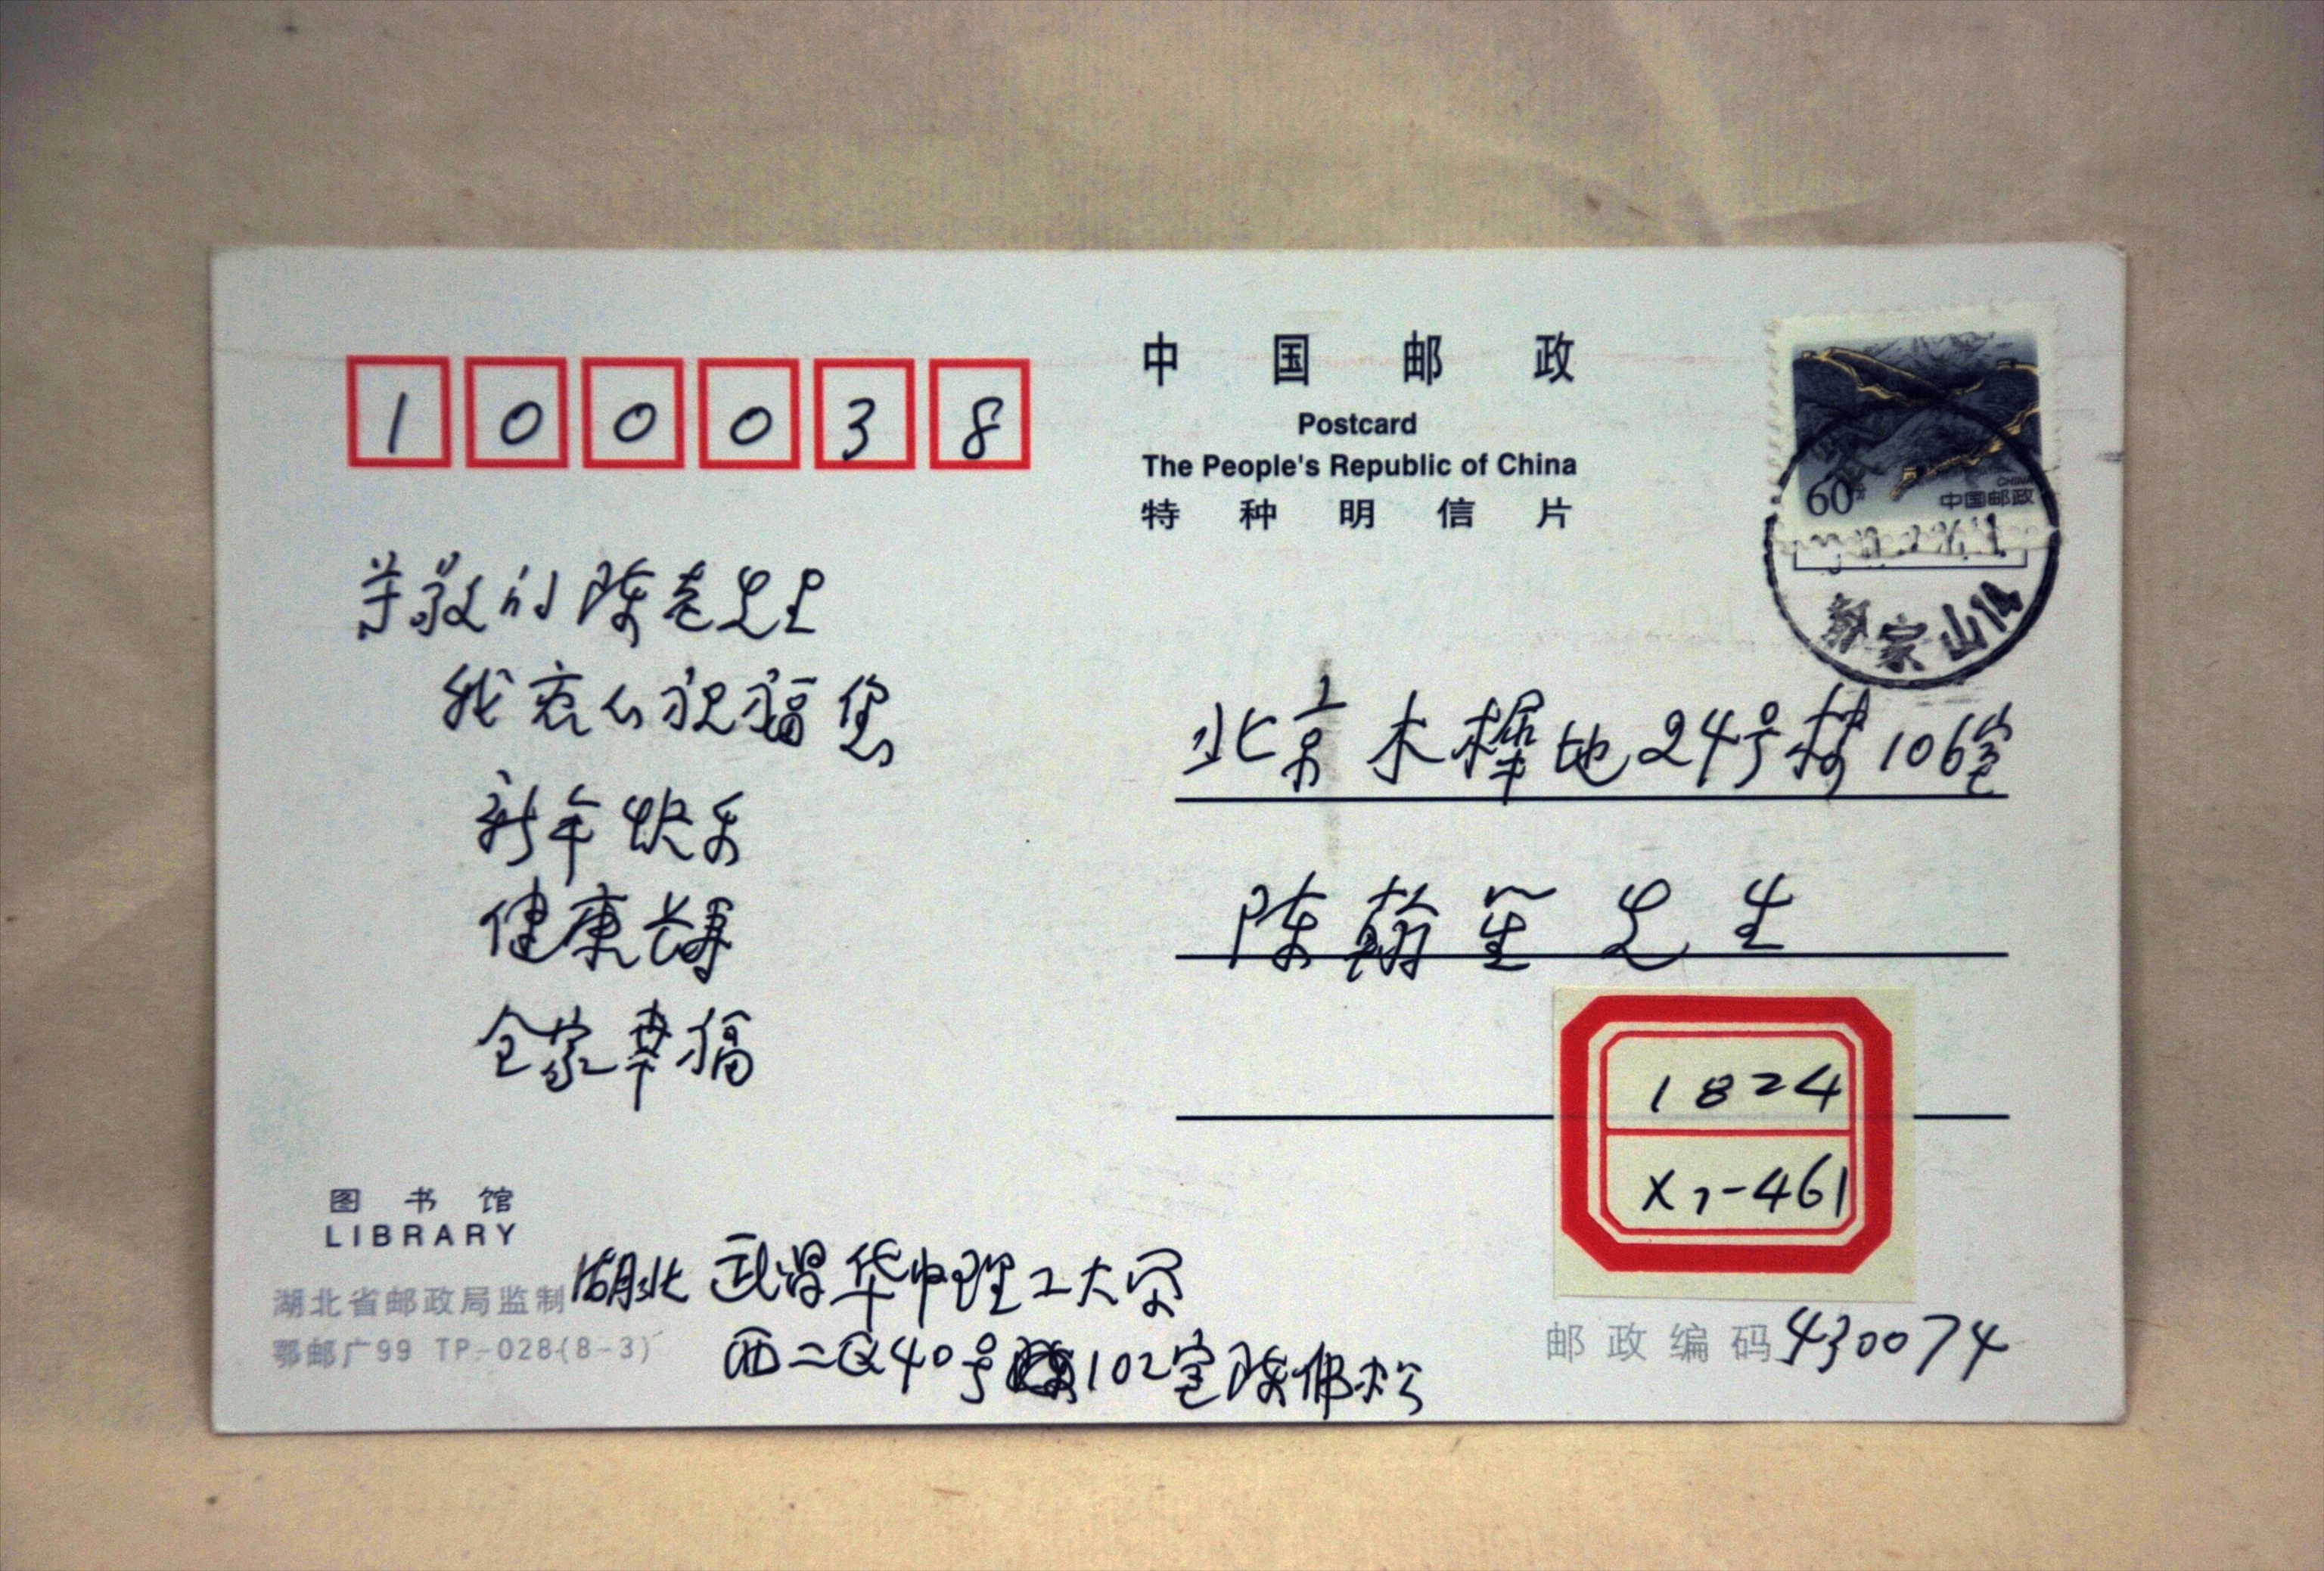 100038
中国邮政
Postcard
The People's Republic of China
特种明信片
60分
CHINA
中国邮政
尊敬的陈老先生
我衷心祝福您
新年快乐
健康长寿
全家幸福
北京木樨地24号楼106室
陈翰笙先生
1824
X7-461
图书馆
LIBRARY
湖北省邮政局监制
鄂邮广99 TP-028(8-3)
湖北 武昌华中理工大学
西二区40号102室陈佛松
邮政编码430074